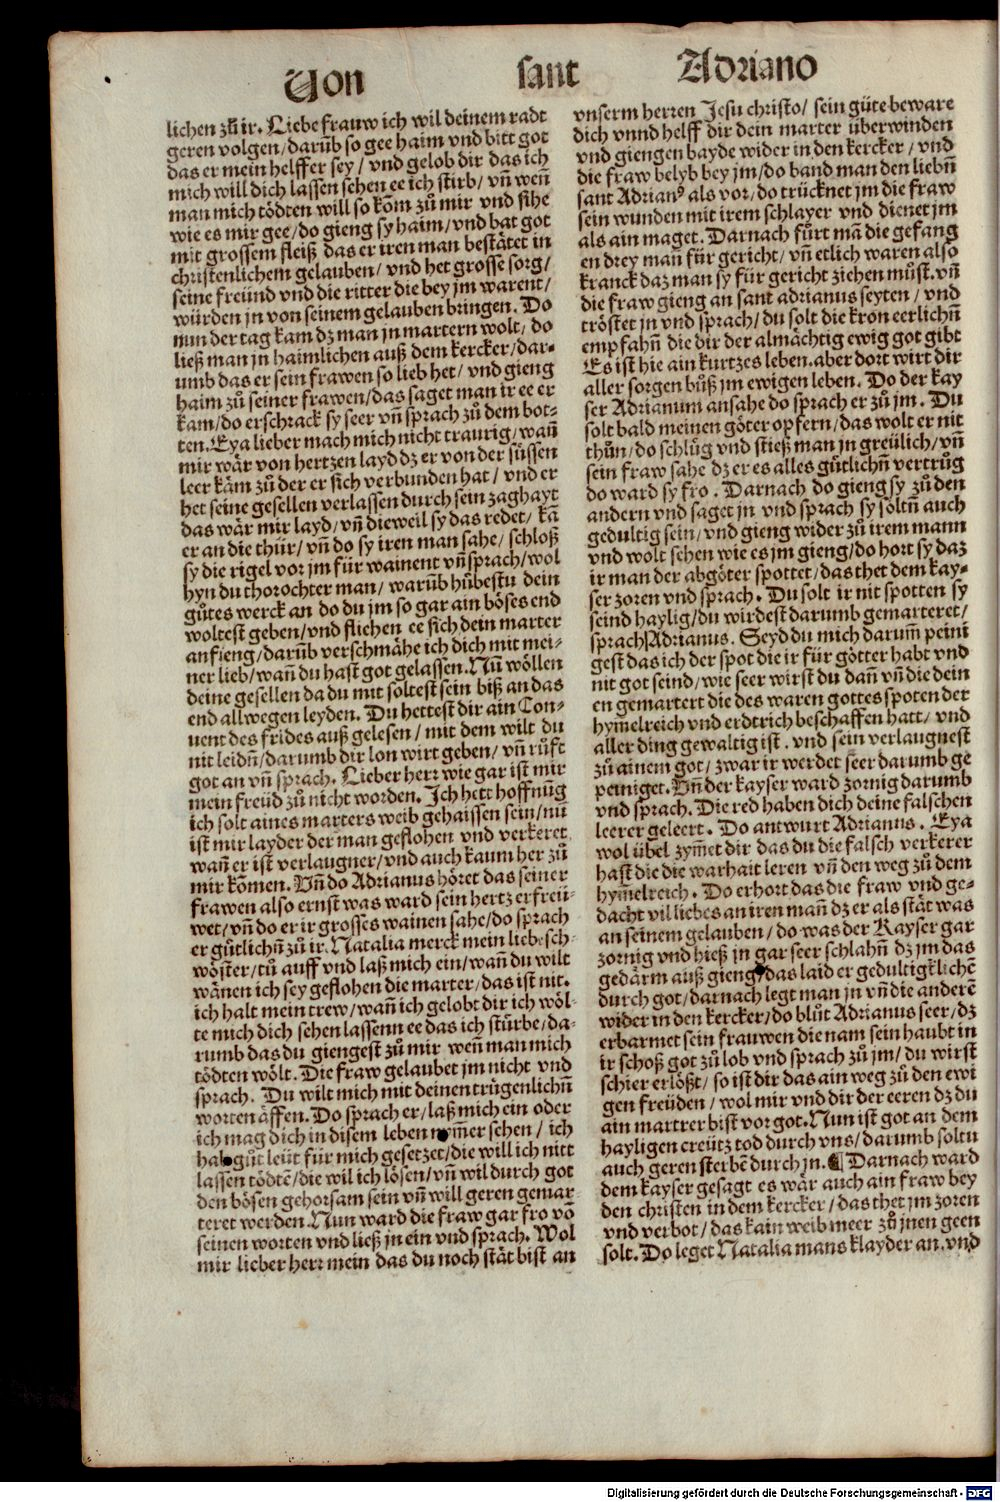 Von sant Adriano
lichen zů ir. Liebe frauw ich wil deinem radt
geren volgen/ darūb so gee haim vnd bitt got
das er mein helffer sey/ vnd gelob dir das ich
mich will dich lassen sehen ee ich stirb/ vñ weñ
man mich tödten will so kom̄ zů mir vnd sihe
wie es mir gee/ do gieng sy haim/ vnd bat got
mit grossem fleiß das er iren man bestätet in
christenlichem gelauben/ vnd het grosse sorg/
seine freünd vnd die ritter die bey jm warent/
würden jn von seinem gelauben bringen. Do
nun der tag kam dz man jn martern wolt/ do
ließ man jn haimlichen auß dem kercker/ dar-
umb das er sein frawen so lieb het/ vnd gieng
haim zů seiner frawen/ das saget man ir ee er
kam/ do erschrack sy seer vñ sprach zů dem bot-
ten. Eya lieber mach mich nicht traurig/ wañ
mir wär von hertzen layd dz er von der süssen
leer käm zů der er sich verbunden hat/ vnd er
het seine gesellen verlassen durch sein zaghayt
das wär mir layd/ vñ dieweil sy das redet/ kā
er an die thür/ vñ do sy iren man sahe/ schloß
sy die rigel vor jm für wainent vñ sprach/ wol
hyn du thorochter man/ warūb hůbestu dein
gůtes werck an do du jm so gar ain böses end
woltest geben/ vnd fliehen ee sich dein marter
anfieng/ darūb verschmähe ich dich mit mei-
ner lieb/ wañ du hast got gelassen. Nū wöllen
deine gesellen da du mit soltest sein biß an das
end allwegen leyden. Du hettest dir ain Con-
uent des frides auß gelesen/ mit dem wilt du
nit leidñ/ darumb dir lon wirt geben/ vñ růft
got an vñ sprach. Lieber herr wie gar ist mir
mein freüd zů nicht worden. Ich hett hoffnūg
ich solt aines marters weib gehaissen sein/ nū
ist mir layder der man geflohen vnd verkeret
wañ er ist verlaugner/ vnd auch kaum her zů
mir kōmen. Vñ do Adrianus höret das seiner
frawen also ernst was ward sein hertz erfreü-
wet/ vñ do er ir grosses wainen sahe/ do sprach
er gůtlichñ zů ir. Natalia merck mein liebe sch-
wöster/ tů auff vnd laß mich ein/ wañ du wilt
wänen ich sey geflohen die marter/ das ist nit.
ich halt mein trew/ wañ ich gelobt dir ich wöl-
te mich dich sehen lassenn ee das ich stürbe/ da-
rumb das du giengest zů mir weñ man mich
tödten wölt. Die fraw gelaubet jm nicht vnd
sprach. Du wilt mich mit deinen trügenlichñ
worten äffen. Do sprach er/ laß mich ein oder
ich mag dich in disem leben nym̄er sehen/ ich
hab gůt leüt für mich gesetzet/ die will ich nitt
lassen tödtē/ die wil ich lösen/ vñ wil durch got
den bösen gehorsam sein vñ will geren gemar-
teret werden. Nun ward die fraw gar fro vō
seinen worten vnd ließ jn ein vnd sprach. Wol
mir lieber herr mein das du noch stät bist an
vnserm herren Jesu christo/ sein güte beware
dich vnnd helff dir dein marter überwinden
vnd giengen bayde wider in den kercker/ vnd
die fraw belyb bey jm/ do band man den liebñ
sant Adrianꝰ als vor/ do trücknet jm die fraw
sein wunden mit irem schlayer vnd dienet jm
als ain maget. Darnach fůrt mā die gefang
en drey mañ für gericht/ vñ etlich waren also
kranck daz man sy für gericht ziehen můst. vñ
die fraw gieng an sant adrianus seyten/ vnd
tröstet jn vnd sprach/ du solt die kron eerlichñ
empfahñ die dir der almächtig ewig got gibt
Es ist hie ain kurtzes leben. aber dort wirt dir
aller sorgen bůß jm ewigen leben. Do der kay
ser Adrianum ansahe do sprach er zů jm. Du
solt bald meinen göter opfern/ das wolt er nit
thůn/ do schlůg vnd stieß man jn greülich/ vñ
sein fraw sahe dz er es alles gůtlichñ vertrůg
do ward sy fro. Darnach do gieng sy zů den
andern vnd saget jn vnd sprach sy soltñ auch
gedultig sein/ vnd gieng wider zů irem mann
vnd wolt sehen wie es jm gieng/ do hort sy daz
ir man der abgöter spottet/ das thet dem kay-
ser zoren vnd sprach. Du solt ir nit spotten sy
seind haylig/ du wirdest darumb gemarteret/
sprach Adrianus. Seyd du mich darum̄ peini
gest das ich der spot die ir für götter habt vnd
nit got seind/ wie seer wirst du dañ vñ die dein
en gemartert die des waren gottes spoten der
hym̄elreich vnd erdtrich beschaffen hatt/ vnd
aller ding gewaltig ist. vnd sein verlaugnest
zů ainem got/ zwar ir werdet seer darumb ge
peiniget. Vñ der kayser ward zornig darumb
vnd sprach. Die red haben dich deine falschen
leerer geleert. Do antwurt Adrianus. Eya
wol übel zym̄et dir das du die falsch verkerer
hast die die warhait leren vñ den weg zů dem
hym̄elreich. Do erhort das die fraw vnd ge-
dacht vil liebes an iren mañ dz er als stät was
an seinem gelauben/ do was der Kayser gar
zornig vnd hieß jn gar seer schlahñ dz jm das
gedärm auß gieng/ das laid er gedultigklichē
durch got/ darnach legt man jn vñ die anderē
wider in den kercker/ do blůt Adrianus seer/ dz
erbarmet sein frauwen die nam sein haubt in
ir schoß got zů lob vnd sprach zů jm/ du wirst
schier erlößt/ so ist dir das ain weg zů den ewi
gen freüden/ wol mir vnd dir der eeren dz du
ain martrer bist vor got. Nun ist got an dem
hayligen creütz tod durch vns/ darumb soltu
auch geren sterbē durch jn. ¶ Darnach ward
dem kayser gesagt es wär auch ain fraw bey
den christen in dem kercker/ das thet jm zoren
vnd verbot/ das kain weib meer zů jnen geen
solt. Do leget Natalia mans klayder an. vnd
Digitalisierung gefördert durch die Deutsche Forschungsgemeinschaft - DFG